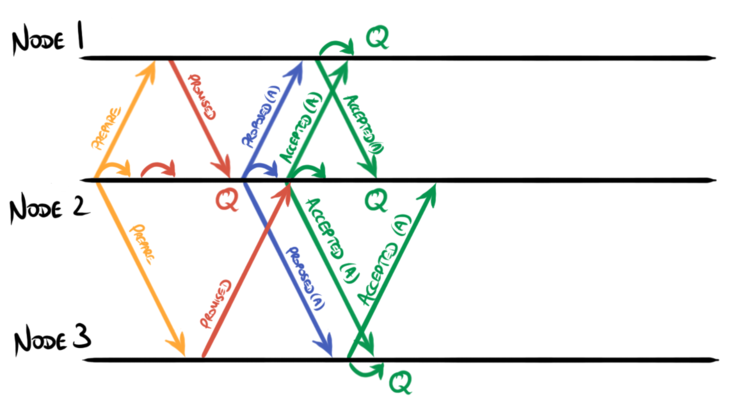 NODE 1
Q
PREPARE
PROMISED
PROPOSED (A)
ACCEPTED (A)
ACCEPTED (A)
NODE 2
Q
Q
PREPARE
PROMISED
PROPOSED (A)
ACCEPTED (A)
ACCEPTED (A)
NODE 3
Q